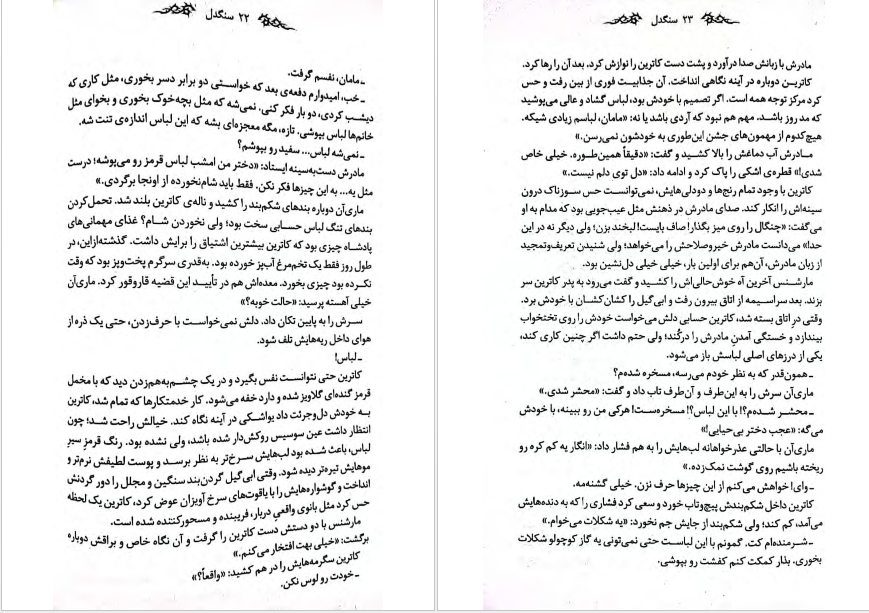 ۲۲ سنگدل
ـ مامان، نفسم گرفت.
ـ خب، امیدوارم دفعه‌ی بعد که خواستی دو برابر دسر بخوری، مثل کاری که
دیشب کردی، دو بار فکر کنی. نمی‌شه که مثل بچه‌خوک بخوری و بخوای مثل
خانم‌ها لباس بپوشی. تازه، مگه معجزه‌ای بشه که این لباس اندازه‌ی تنت شه.
ـ نمی‌شه لباس... سفید رو بپوشم؟
مادرش دست‌به‌سینه ایستاد: «دختر من امشب لباس قرمز رو می‌پوشه؛ درست
مثل یه... به این چیزها فکر نکن. فقط باید شام‌نخورده از اونجا برگردی.»
ماری‌آن دوباره بندهای شکم‌بند را کشید و ناله‌ی کاترین بلند شد. تحمل‌کردن
بندهای تنگ لباس حسابی سخت بود؛ ولی نخوردن شام؟ غذای مهمانی‌های
پادشاه چیزی بود که کاترین بیشترین اشتیاق را برایش داشت. گذشته‌ازاین، در
طول روز فقط یک تخم‌مرغ آب‌پز خورده بود. به‌قدری سرگرم پخت‌وپز بود که وقت
نکرده بود چیزی بخورد. معده‌اش هم در تأیید این قضیه قاروقور کرد. ماری‌آن
خیلی آهسته پرسید: «حالت خوبه؟»
سرش را به پایین تکان داد. دلش نمی‌خواست با حرف‌زدن، حتی یک ذره از
هوای داخل ریه‌هایش تلف شود.
ـ لباس!
کاترین حتی نتوانست نفس بگیرد و در یک چشم‌به‌هم‌زدن دید که با مخمل
قرمز گنده‌ای گلاویز شده و دارد خفه می‌شود. کار خدمتکارها که تمام شد، کاترین
به خودش دل‌وجرئت داد یواشکی در آینه نگاه کند. خیالش راحت شد؛ چون
انتظار داشت عین سوسیس روکش‌دار شده باشد، ولی نشده بود. رنگ قرمز سیر
لباس، باعث شده بود لب‌هایش سرخ‌تر به نظر برسد و پوست لطیفش نرم‌تر و
موهایش تیره‌تر دیده شود. وقتی ابی‌گیل گردن‌بند سنگین و مجلل را دور گردنش
انداخت و گوشواره‌هایش را با یاقوت‌های سرخ آویزان عوض کرد، کاترین یک لحظه
حس کرد مثل بانوی واقعی دربار، فریبنده و مسحورکننده شده است.
مارشنس با دو دستش دست کاترین را گرفت و آن نگاه خاص و براقش دوباره
برگشت: «خیلی بهت افتخار می‌کنم.»
کاترین سگرمه‌هایش را در هم کشید: «واقعاً؟»
ـ خودت رو لوس نکن.
۲۳ سنگدل
مادرش با زبانش صدا درآورد و پشت دست کاترین را نوازش کرد. بعد آن را رها کرد.
کاترین دوباره در آینه نگاهی انداخت. آن جذابیت فوری از بین رفت و حس
کرد مرکز توجه همه است. اگر تصمیم با خودش بود، لباس گشاد و عالی می‌پوشید
که مد روز باشد. مهم هم نبود که آردی باشد یا نه: «مامان، لباسم زیادی شیکه.
هیچ‌کدوم از مهمون‌های جشن این‌طوری به خودشون نمی‌رسن.»
مادرش آب دماغش را بالا کشید و گفت: «دقیقاً همین‌طوره. خیلی خاص
شدی!» قطره‌ی اشکی را پاک کرد و ادامه داد: «دل توی دلم نیست.»
کاترین با وجود تمام رنج‌ها و دودلی‌هایش، نمی‌توانست حس سوزناک درون
سینه‌اش را انکار کند. صدای مادرش در ذهنش مثل عیب‌جویی بود که مدام به او
می‌گفت: «چنگال را روی میز بگذار! صاف بایست! لبخند بزن؛ ولی دیگر نه در این
حد!» می‌دانست مادرش خیروصلاحش را می‌خواهد؛ ولی شنیدن تعریف‌وتمجید
از زبان مادرش، آن‌هم برای اولین بار، خیلی خیلی دل‌نشین بود.
مارشنس آخرین آه خوش‌حالی‌اش را کشید و گفت می‌رود به پدر کاترین سر
بزند. بعد سراسیمه از اتاق بیرون رفت و ابی‌گیل را کشان‌کشان با خودش برد.
وقتی در اتاق بسته شد، کاترین حسابی دلش می‌خواست خودش را روی تختخواب
بیندازد و خستگی آمدنِ مادرش را درکُند؛ ولی حتم داشت اگر چنین کاری کند،
یکی از درزهای اصلی لباسش باز می‌شود.
ـ همون‌قدر که به نظر خودم می‌رسه، مسخره شده‌م؟
ماری‌آن سرش را به این‌طرف و آن‌طرف تاب داد و گفت: «محشر شدی.»
ـ محشر شده‌م؟! با این لباس؟! مسخره‌ست! هرکی من رو ببینه، با خودش
می‌گه: «عجب دختر بی‌حیایی!»
ماری‌آن با حالتی عذرخواهانه لب‌هایش را به هم فشار داد: «انگار یه کم کره رو
ریخته باشیم روی گوشت نمک‌زده.»
ـ وای! خواهش می‌کنم از این چیزها حرف نزن. خیلی گشنه‌مه.
کاترین داخل شکم‌بندش پیچ‌وتاب خورد و سعی کرد فشاری را که به دنده‌هایش
می‌آمد، کم کند؛ ولی شکم‌بند از جایش جم نخورد: «یه شکلات می‌خوام.»
ـ شرمنده‌ام کت. گمونم با این لباست حتی نمی‌تونی یه گاز کوچولو شکلات
بخوری. بذار کمکت کنم کفشت رو بپوشی.